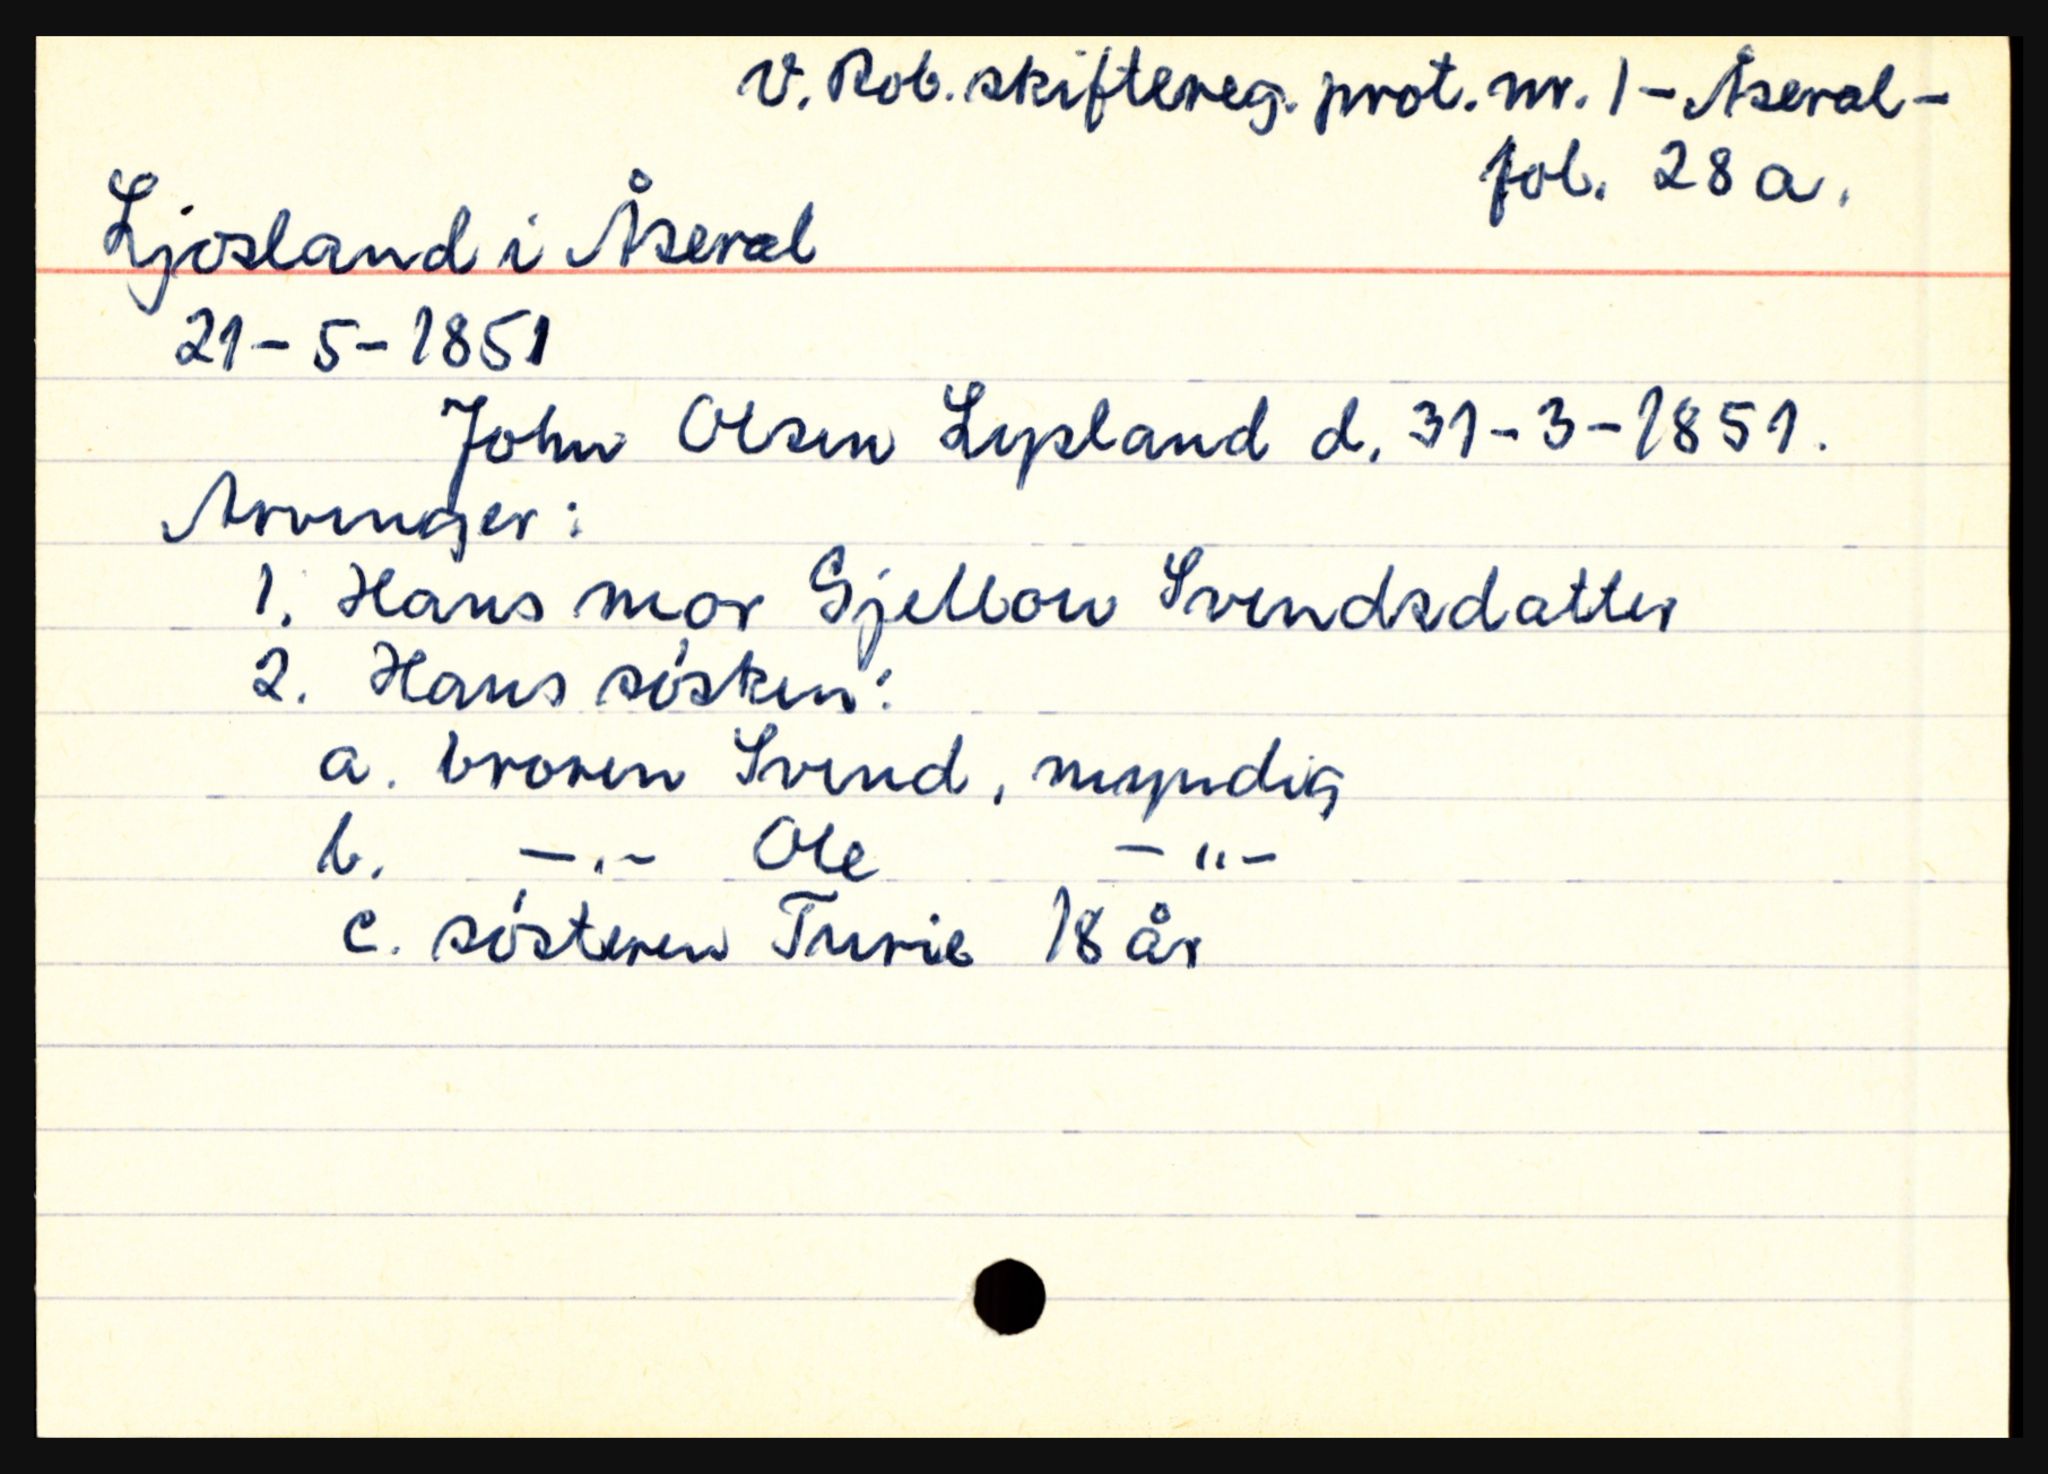 V. Rob. skiftereg. prot. nr. 1 - Åseral -
fol. 28 a.
Ljosland i Åseral
21 - 5 - 1851
John Olsen Lysland d. 31 - 3 - 1851.
Arvinger:
1. Hans mor Gjellow Svendsdatter
2. Hans søsken:
a. broren Svend, myndig
b. - " - Ole - " -
c. søsteren Turie 18 år